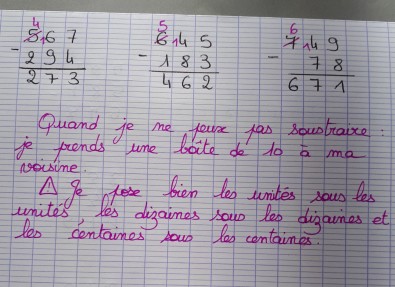 4 5 6
5̶ 16 7 6̶ 14 5 7̶ 14 9
- 2 9 4 - 1 8 3 - 7 8
2 7 3 4 6 2 6 7 1
Quand je ne peux pas soustraire :
je prends une boîte de 10 à ma
voisine.
⚠ Je pose bien les unités sous les
unités, les dizaines sous les dizaines et
les centaines sous les centaines.